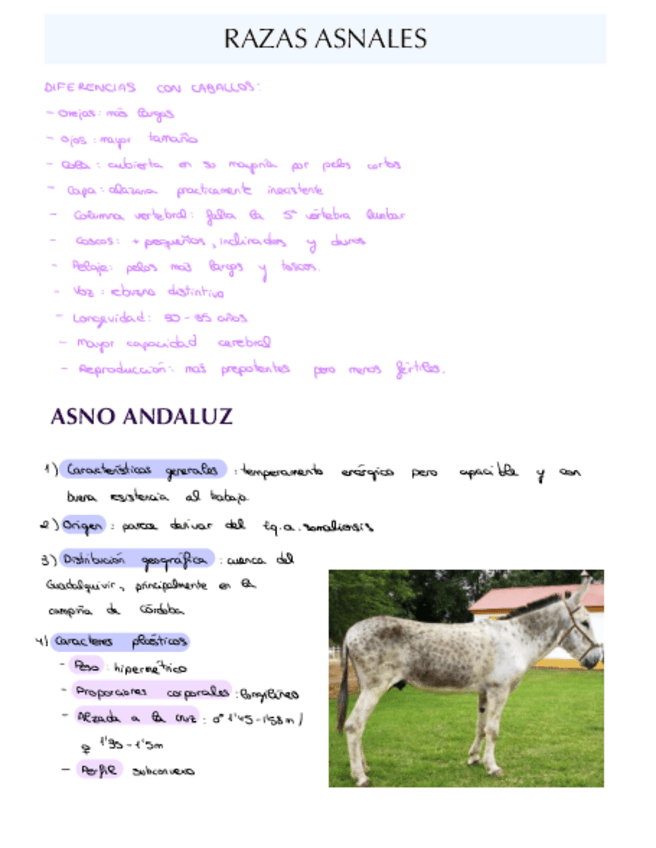 RAZAS ASNALES
DIFERENCIAS CON CABALLOS:
- Orejas: más largas
- Ojos: mayor tamaño
- Cola: cubierta en su mayoría por pelos cortos
- Capa: alazana practicamente inexistente
- Columna vertebral: falta la 5ª vértebra lumbar
- Cascos: + pequeños, inclinados y duros
- Pelaje: pelos más largos y toscos.
- Voz: rebuzno distintivo
- Longevidad: años
- Mayor capacidad cerebral
- Reproducción: más prepotentes pero menos fértiles.
ASNO ANDALUZ
1) Características generales: temperamento enérgico pero apacible y con
buena resistencia al trabajo
2) Origen: parece derivar del Eq.a. somaliensis
3) Distribución geográfica: cuenca del
Guadalquivir, principalmente en la
campiña de Córdoba
4) Caracteres plásticos
- Peso: hipermétrico
- Proporciones corporales: longilíneo
- Alzada a la cruz: ♂ 1'45-1'58m/
♀ -1'5m
- Perfil subconvexo